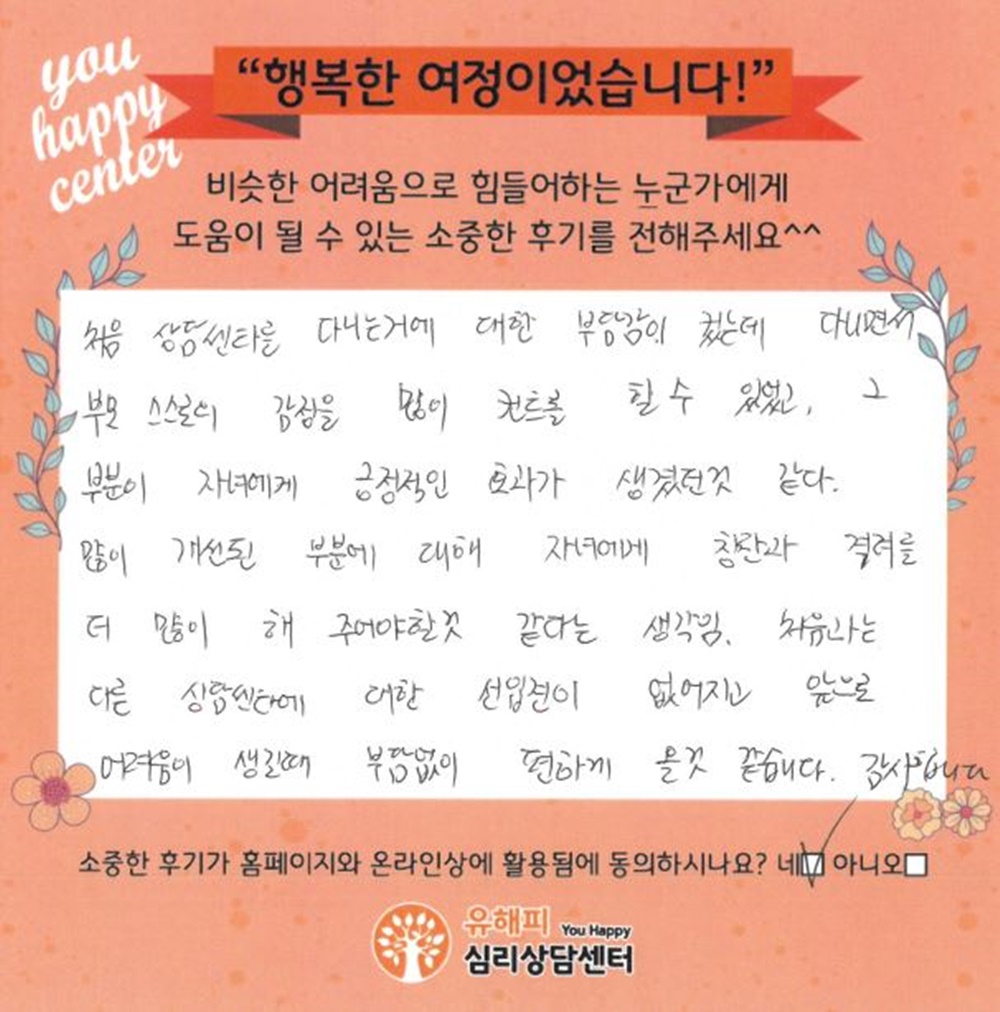 you
happy
center
“행복한 여정이었습니다!”
비슷한 어려움으로 힘들어하는 누군가에게
도움이 될 수 있는 소중한 후기를 전해주세요^^
처음 상담센타를 다니는거에 대한 부담감이 컸는데 다니면서
부모 스스로의 감정을 많이 컨트롤 할 수 있었고, 그
부분이 자녀에게 긍정적인 효과가 생겼던것 같다.
많이 개선된 부분에 대해 자녀에게 칭찬과 격려를
더 많이 해 주어야할것 같다는 생각임. 처음과는
다른 상담센타에 대한 선입견이 없어지고 앞으로
어려움이 생길때 부담없이 편하게 올것 같습니다. 감사합니다
소중한 후기가 홈페이지와 온라인상에 활용됨에 동의하시나요? 네 아니오
유해피 You Happy
심리상담센터